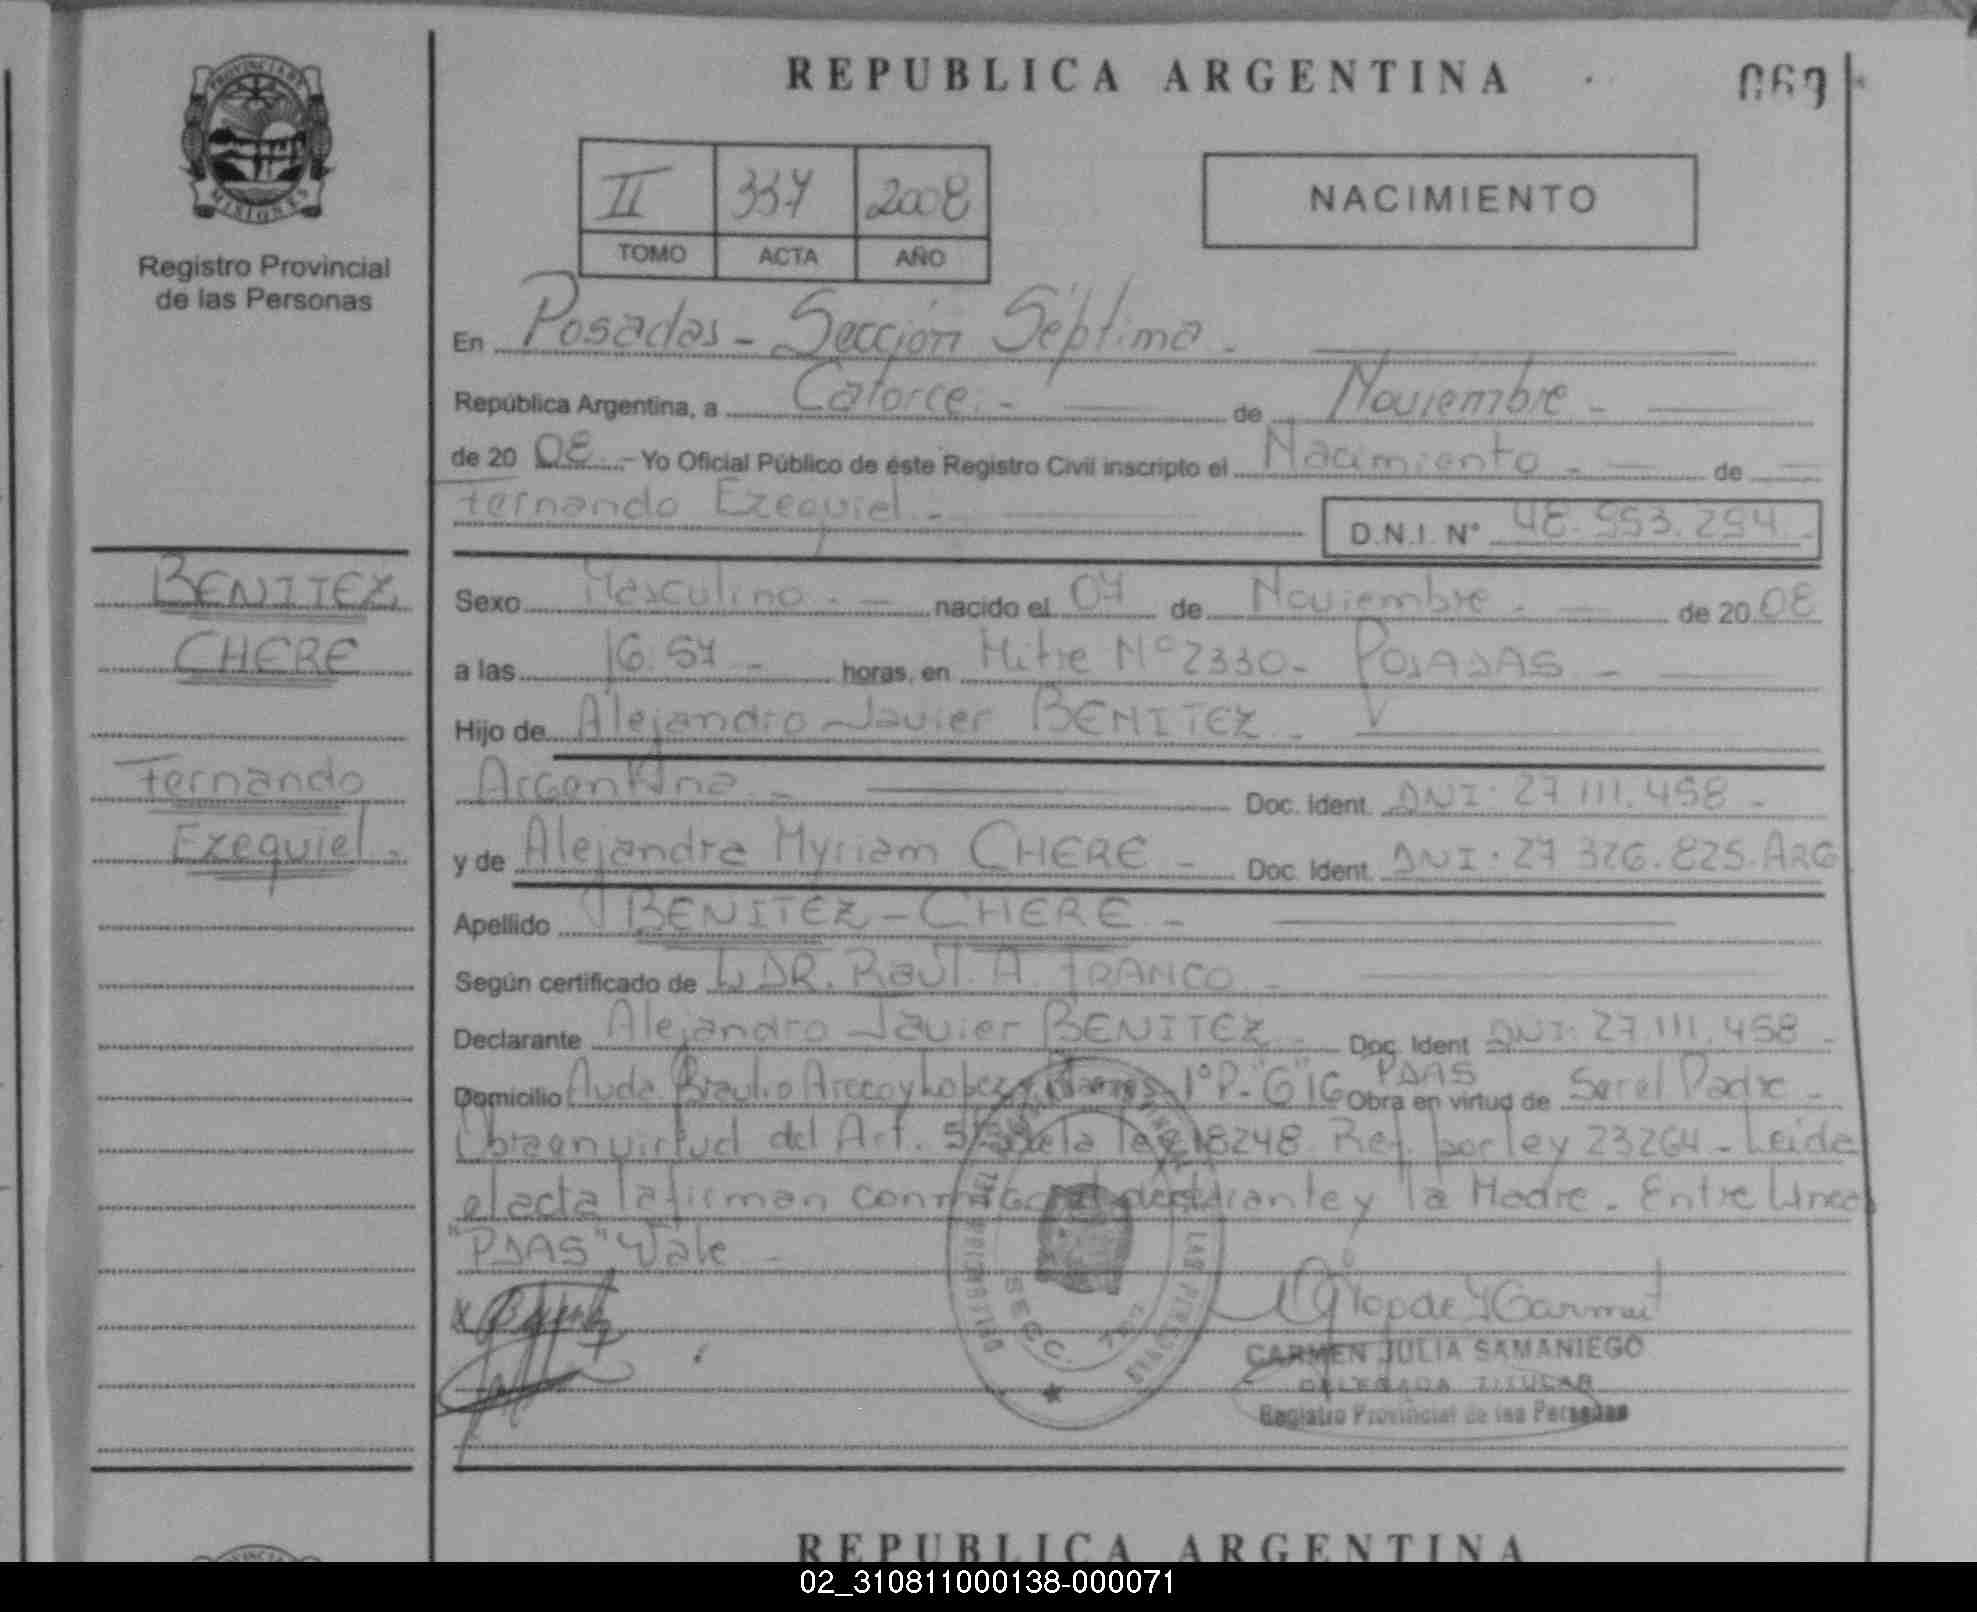 REPUBLICA ARGENTINA
069
PROVINCIA DE
MISIONES
Registro Provincial
de las Personas
II 337 2008
TOMO ACTA AÑO
NACIMIENTO
En Posadas - Sección Séptima -
República Argentina, a Catorce. - de Noviembre -
de 20 08. - Yo Oficial Público de éste Registro Civil inscripto el Nacimiento - de
Fernando Ezequiel - D.N.I. Nº 48.553.254 -
BENITEZ
CHERE
Fernando
Ezequiel -
Sexo Masculino - nacido el 07 de Noviembre - de 20 08
a las 16.57 - horas, en Mitre Nº 2330 - POSADAS -
Hijo de Alejandro Javier BENITEZ -
Argentina - Doc. Ident. DNI. 27.111.458 -
y de Alejandra Myriam CHERE - Doc. Ident. DNI. 27 326.825. ARG
Apellido BENITEZ - CHERE -
Según certificado de DR. Raúl. A. FRANCO -
Declarante Alejandro Javier BENITEZ - Doc. Ident DNI: 27.111.458 -
PDAS
Domicilio Avda. Braulio Areco y Lopez y 1º P. "G" 16 Obra en virtud de Ser el Padre -
Obra en virtud del Art. de la ley 18248. Ref. por ley 23264 - Leida
el acta la firman conmigo el declarante y la Madre. Entre Lineas
"PDAS" Vale -
SECC.
CARMEN JULIA SAMANIEGO
DELEGADA TITULAR
Registro Provincial de las Personas
REPUBLICA ARGENTINA
02_310811000138-000071